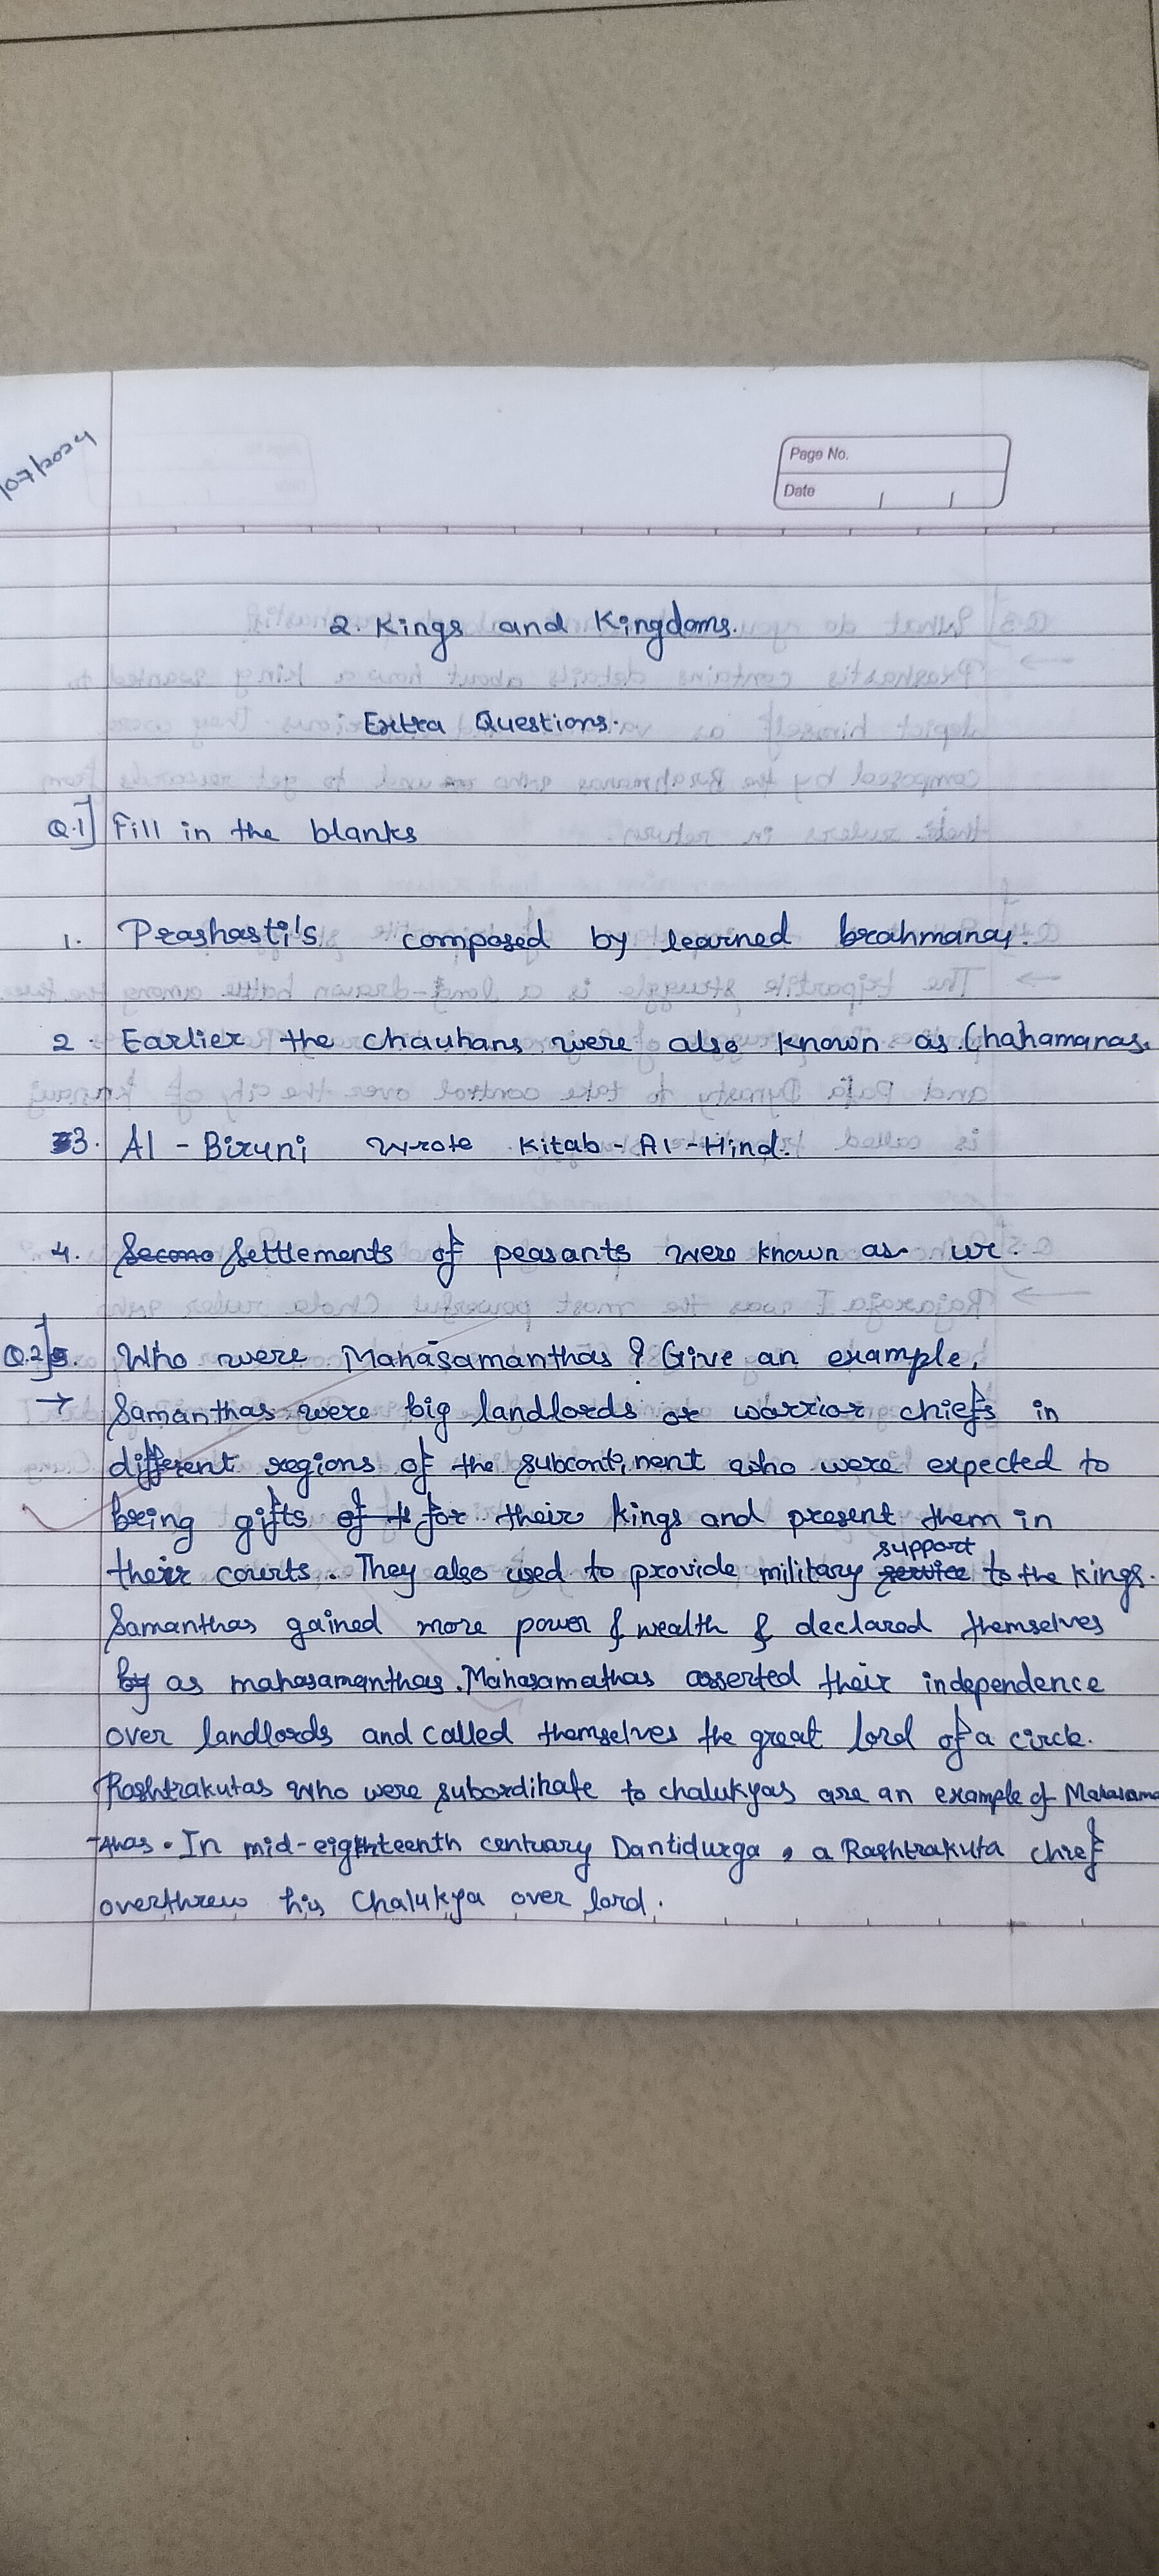 /07/2024
Page No.
Date
2. Kings and Kingdoms.
Extra Questions.
Q.1] Fill in the blanks
1. Prashasti's composed by learned brahmanas.
2. Earlier the chauhans were also known as Chahamanas.
3. Al - Biruni wrote Kitab - Al - Hind.
4. Settlements of peasants were known as ur.
Q.2] Who were Mahāsamanthas ? Give an example.
→ Samanthas were big landlords or warrior chiefs in
different regions of the subcontinent who were expected to
bring gifts for their kings and present them in
their courts. They also used to provide military support to the kings.
Samanthas gained more power & wealth & declared themselves
as mahasamanthas. Mahasamathas asserted their independence
over landlords and called themselves the great lord of a circle.
Rashtrakutas who were subordinate to chalukyas are an example of Mahasama
-thas. In mid-eighteenth century Dantidurga, a Rashtrakuta chief
overthrew his Chalukya over lord.